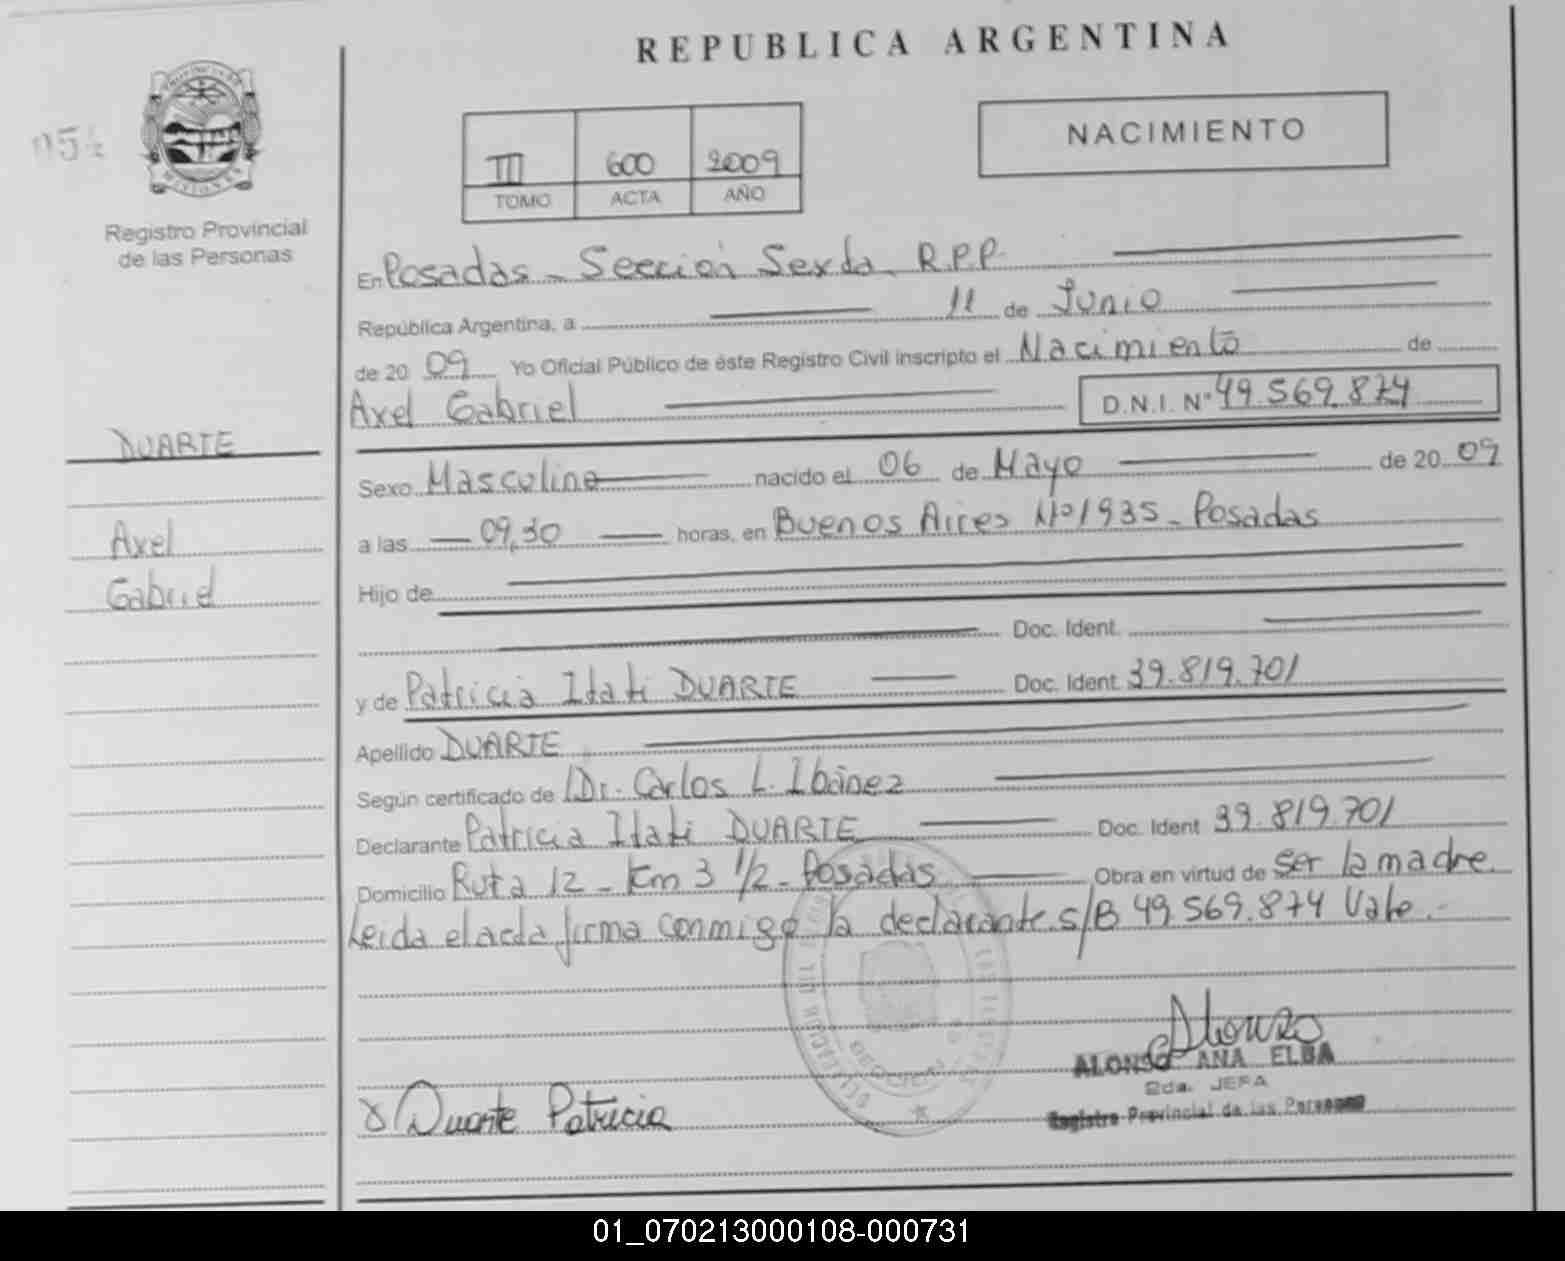 REPUBLICA ARGENTINA
MISIONES
Registro Provincial
de las Personas
III 600 2009
TOMO ACTA AÑO
NACIMIENTO
En Posadas - Sección Sexta R.P.P.
República Argentina, a 11 de Junio
de 20 09 Yo Oficial Público de éste Registro Civil inscripto el Nacimiento de
Axel Gabriel D.N.I. N° 49.569.874
DUARTE
Axel
Gabriel
Sexo Masculino nacido el 06 de Mayo de 20 09
a las 09,30 horas, en Buenos Aires Nº 1935 - Posadas
Hijo de
Doc. Ident.
y de Patricia Itati DUARTE Doc. Ident. 39.819.701
Apellido DUARTE
Según certificado de Dr. Carlos L. Ibañez
Declarante Patricia Itati DUARTE Doc. Ident 39.819.701
Domicilio Ruta 12 - Km 3 1/2 - Posadas Obra en virtud de ser la madre.
Leida el acta, firma conmigo la declarante. s/B 49.569.874 Vale.-
Alonso
ALONSO ANA ELBA
2da. JEFA
Registro Provincial de las Personas
Duarte Patricia
01_070213000108-000731